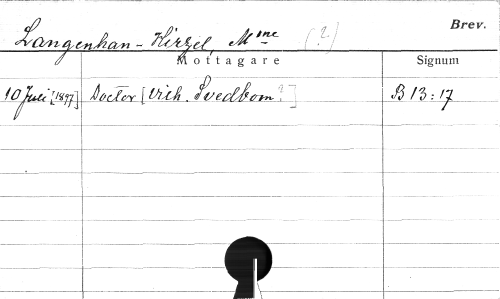 Brev.
Langenhan-Hirzel, Mme (?)
Mottagare Signum
10 Juli [1897] Doctor [Vilh. Svedbom?] B 13:17